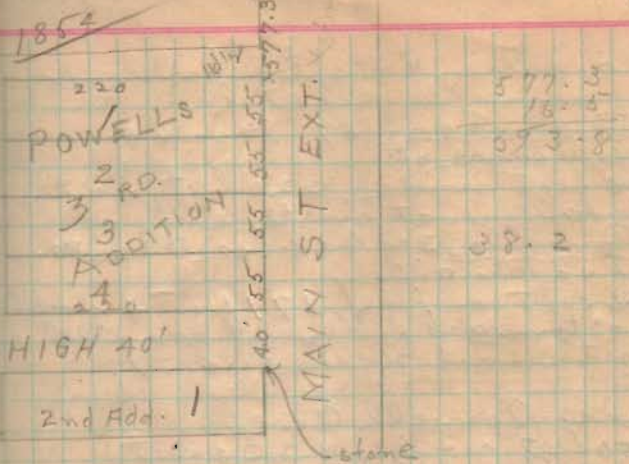 1854
220
1
POWELLS
2
3 RD.
3
ADDITION
4
220
HIGH 40'
2nd Add. 1
577.3
55
55
55
55
40'
MAIN ST EXT.
stone
577.3
16.5
593.8
38.2